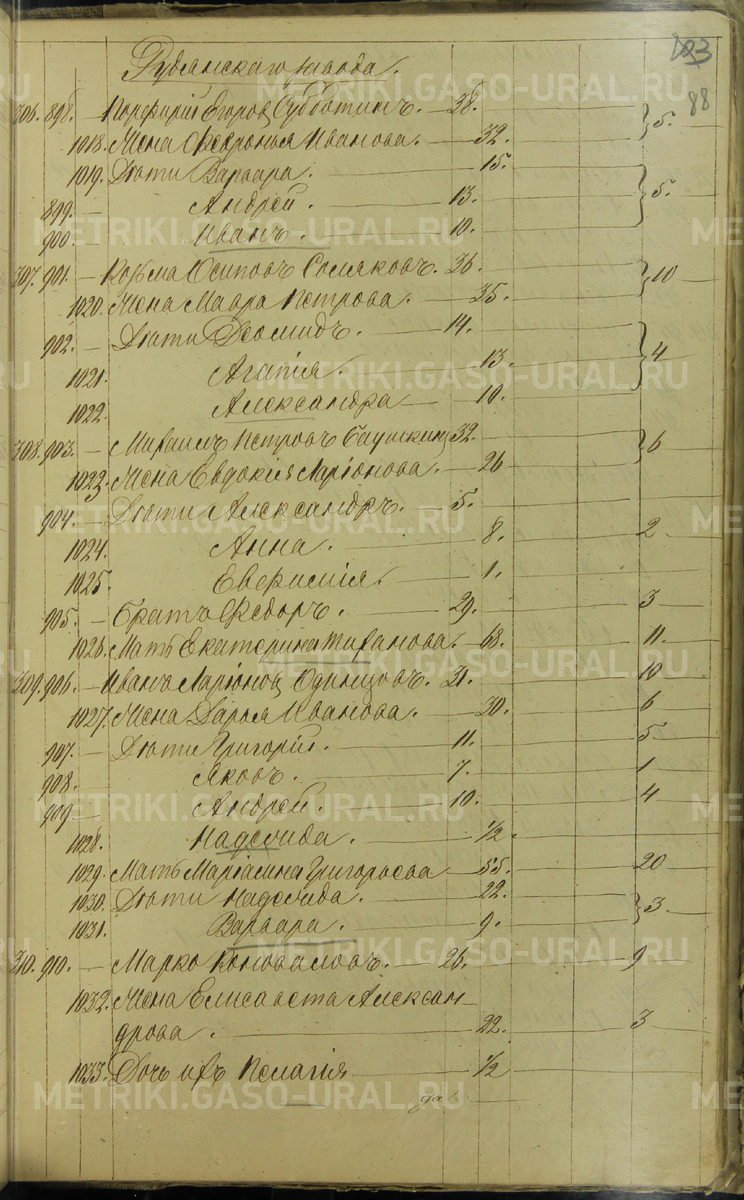 103
88
Рудянскаго завода.
306. 898. — Порфирій Егоровъ Субботинъ. — 38. } 5.
1018. Жена Февронья Иванова. — 32.
1019. Дѣти Варвара. — 15. } 5.
899. — Андрей. — 13.
900. — Иванъ. — 10.
307. 901. — Козьма Осиповъ Сомяковъ. 36. } 10
1020. Жена Мавра Петрова. — 35.
902. — Дѣти Діомидъ. — 14. } 4
1021. Агапія. — 13.
1022. Александра — 10.
308. 903. — Михаилъ Петровъ 32. } 6
1023. Жена Евдокія Ларіонова. — 26
904. — Дѣти Александръ. — 5.
1024. Анна. — 8. 2
1025. Евфимія. — 1.
905. — Братъ Федоръ. — 29. 3
1026. Мать Екатерина Тиханова. 68. 11.
309. 906. — Иванъ Ларіоновъ Одинцовъ. 31. 10
1027. Жена Дарья Иванова. — 30. 6
907. — Дѣти Григорій. — 11. 5
908. — Яковъ. — 7. 1
909 — Андрей. — 10. 4
1028. Надежда. — 1/2
1029. Мать Маріамна Григорьева — 55. 20
1030. Дѣти Надежда. — 22. } 3.
1031. Варвара. — 9.
310. 910. — Марко Коноваловъ. — 26. 9
1032. Жена Елисавета Алексан-
дрова. — 22. 3
1033. Дочь ихъ Пелагія — 1/2
METRIKI.GASO-URAL.RU